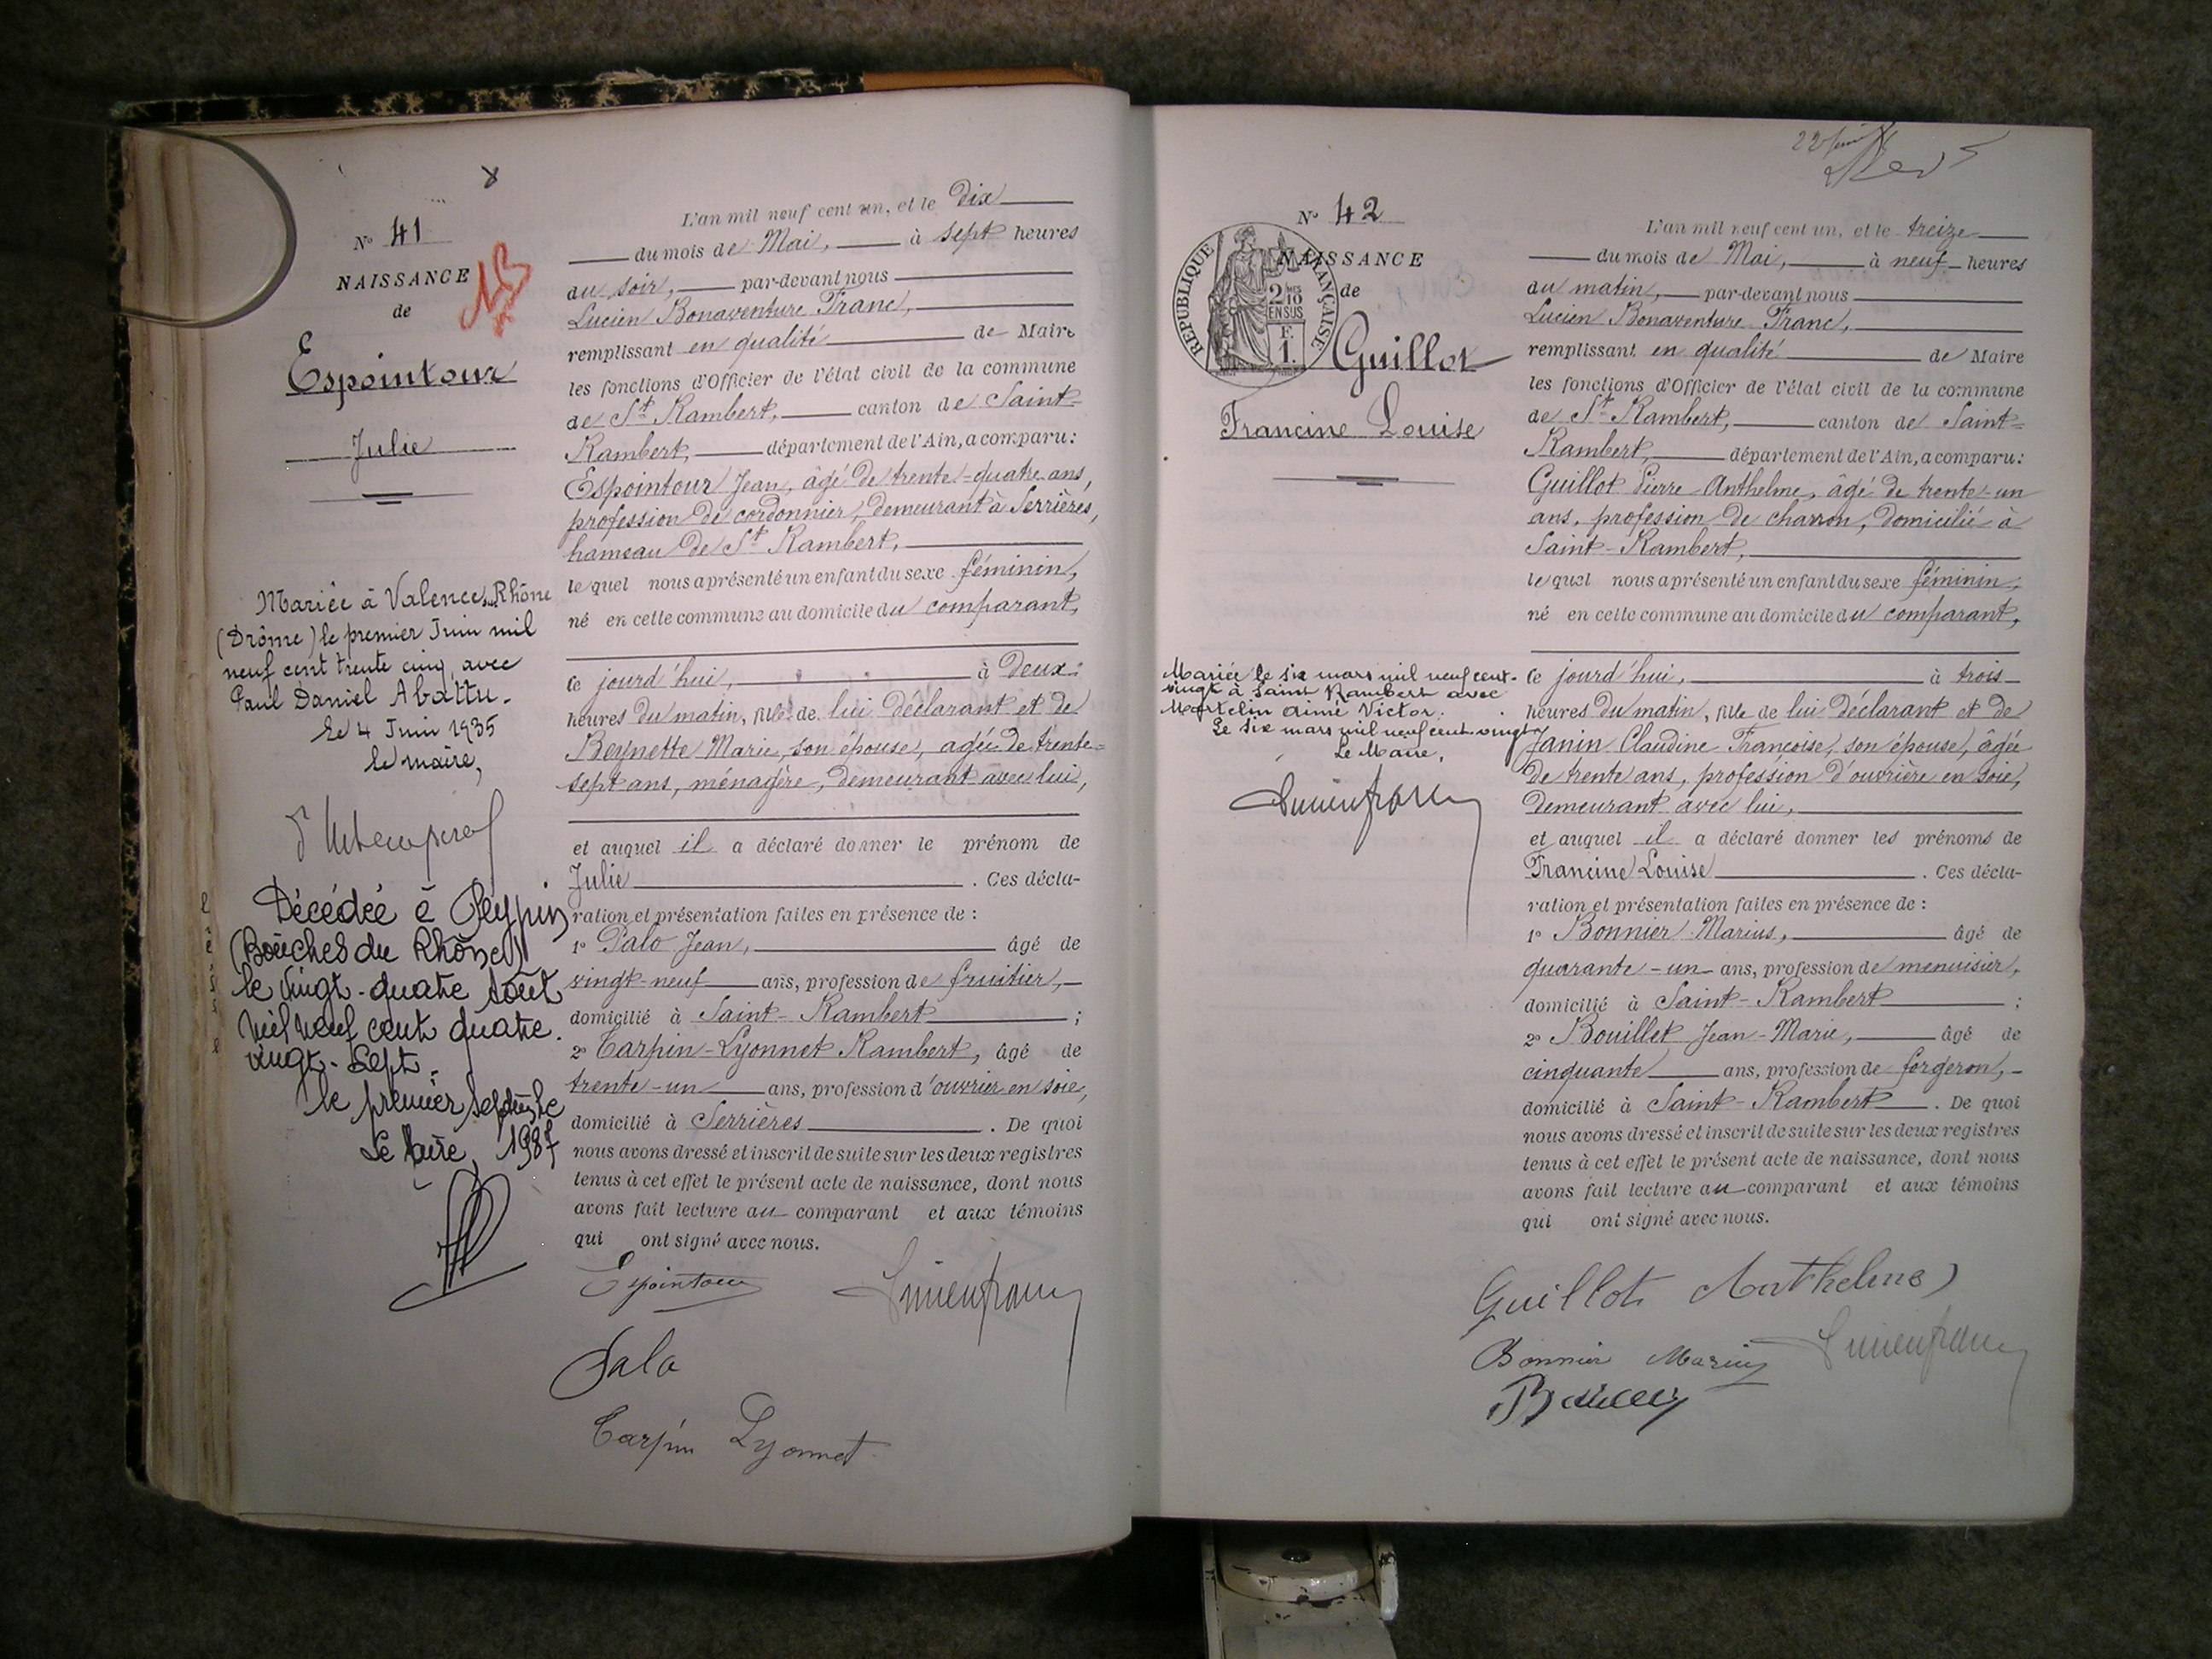 N° 41
NAISSANCE
de
Espointour
Julie
Mariée à Valence sur Rhône
(Drôme) le premier Juin mil
neuf cent trente cinq avec
Paul Daniel Abattu.
Le 4 Juin 1935
le maire,
Décédée à Peypin
(Bouches du Rhône)
le vingt-quatre août
mil neuf cent quatre.
vingt-sept.
le premier septembre
Le Maire, 1987
L'an mil neuf cent un, et le Dix
du mois de Mai, à sept heures
du soir, par-devant nous
Lucien Bonaventure Franc,
remplissant en qualité de Maire
les fonctions d'Officier de l'état civil de la commune
de St Rambert, canton de Saint-
Rambert, département de l'Ain, a comparu:
Espointour Jean, âgé de trente-quatre ans,
profession de cordonnier, demeurant à Serrières,
hameau de St Rambert,
lequel nous a présenté un enfant du sexe féminin,
né en cette commune au domicile du comparant,
ce jourd'hui, à deux
heures du matin, fille de lui déclarant et de
Beynette Marie, son épouse, agée de trente-
sept ans, ménagère, demeurant avec lui,
et auquel il a déclaré donner le prénom de
Julie. Ces décla-
ration et présentation faites en présence de :
1° Palo Jean, âgé de
vingt-neuf ans, profession de fruitier,
domicilié à Saint-Rambert ;
2° Tarpin-Lyonnet Rambert, âgé de
trente-un ans, profession d'ouvrier en soie,
domicilié à Serrières. De quoi
nous avons dressé et inscrit de suite sur les deux registres
tenus à cet effet le présent acte de naissance, dont nous
avons fait lecture au comparant et aux témoins
qui ont signé avec nous.
Espointour Lucien franc
Palo
Tarpin Lyonnet
N° 42
NAISSANCE
de
RÉPUBLIQUE FRANÇAISE
2/10
EN SUS
F.
1.
Guillot
Francine Louise
Mariée le six mars mil neuf cent-
vingt à Saint Rambert avec
Martelin Aimé Victor.
Le six mars mil neuf cent vingt
Le Maire,
Lucien franc
L'an mil neuf cent un, et le treize
du mois de Mai, à neuf heures
du matin, par-devant nous
Lucien Bonaventure Franc,
remplissant en qualité de Maire
les fonctions d'Officier de l'état civil de la commune
de St Rambert, canton de Saint-
Rambert, département de l'Ain, a comparu:
Guillot Pierre-Anthelme, âgé de trente-un
ans, profession de charron, domicilié à
Saint-Rambert,
lequel nous a présenté un enfant du sexe féminin,
né en cette commune au domicile du comparant,
ce jourd'hui, à trois
heures du matin, fille de lui déclarant et de
Janin Claudine Françoise, son épouse, âgée
de trente ans, profession d'ouvrière en soie,
demeurant avec lui,
et auquel il a déclaré donner les prénoms de
Francine Louise. Ces décla-
ration et présentation faites en présence de :
1° Bonnier Marius, âgé de
quarante-un ans, profession de menuisier,
domicilié à Saint-Rambert ;
2° Bouillet Jean-Marie, âgé de
cinquante ans, profession de forgeron,
domicilié à Saint-Rambert. De quoi
nous avons dressé et inscrit de suite sur les deux registres
tenus à cet effet le présent acte de naissance, dont nous
avons fait lecture au comparant et aux témoins
qui ont signé avec nous.
Guillot Anthelme
Bonnier Marius Lucien franc